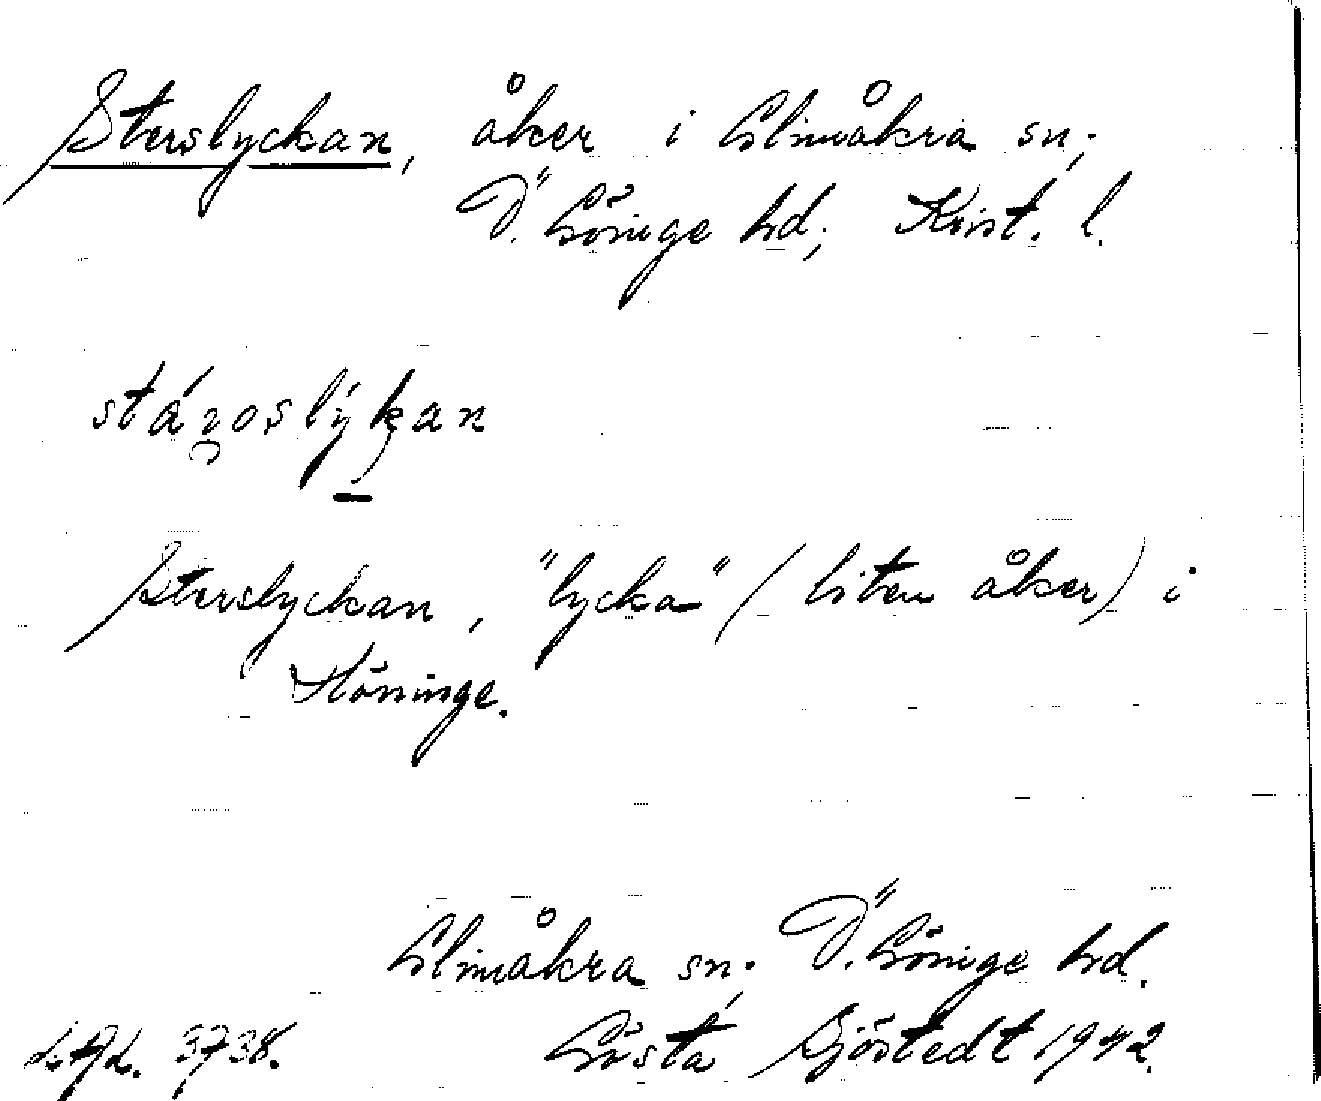 Sterslyckan, åker i Glimåkra sn;
Ö. Göinge hd; Krist. l.
Sterslyckan, "lycka" (liten åker) i
Höninge.
Glimåkra sn. Ö. Göinge hd.
L.A.L. 3738. Gösta Sjöstedt 1942.